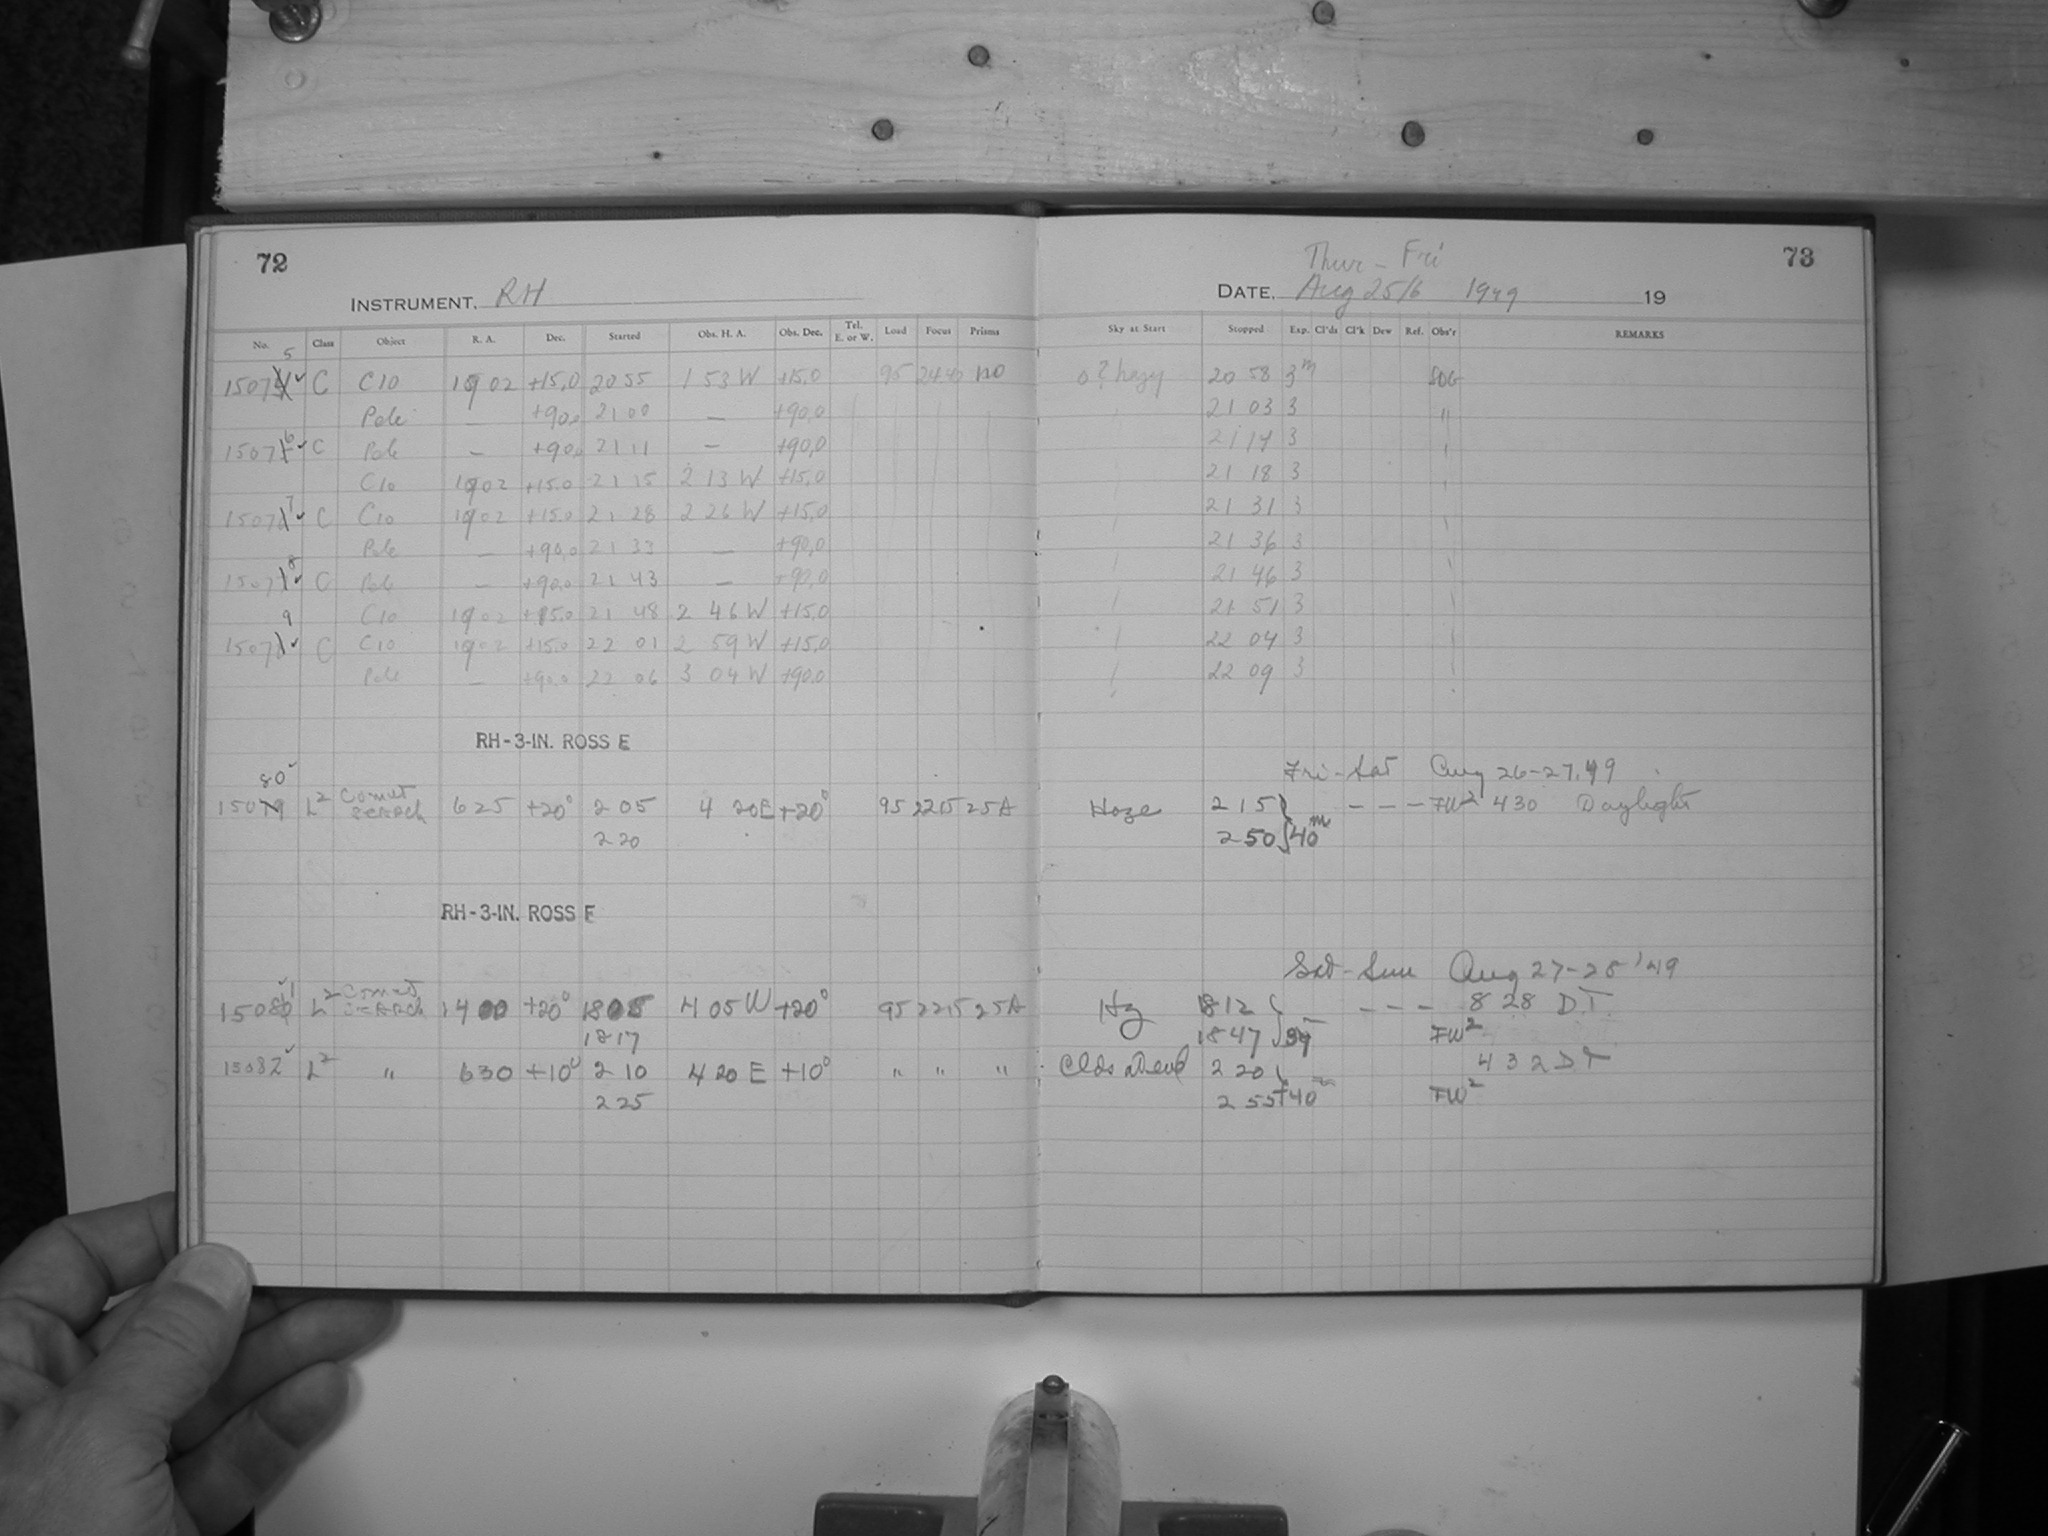 72
INSTRUMENT. RH
No. Class Object R. A. Dec. Started Obs. H. A. Obs. Dec. Tel. E. or W. Load Focus Prisms
15075 C C10 19 02 +15.0 20 55 1 53 W +15.0 95 no
Pole — +90.0 21 00 — +90.0
15076 C Pole — +90.0 21 11 — +90.0
C10 19 02 +15.0 21 15 2 13 W +15.0
15077 C C10 19 02 +15.0 21 28 2 26 W +15.0
Pole — +90.0 21 33 — +90.0
15078 C Pole — +90.0 21 43 — +90.0
C10 19 02 +15.0 21 48 2 46 W +15.0
15079 C C10 19 02 +15.0 22 01 2 59 W +15.0
Pole — +90.0 22 06 3 04 W +90.0
RH-3-IN. ROSS E
80
15079 L² Comet search 6 25 +20° 2 05 4 20 E +20° 95 2215 25A
2 20
RH-3-IN. ROSS E
15081 L² Comet search 14 00 +20° 18 05 4 05 W +20° 95 2215 25A
18 17
15082 L² " 6 30 +10° 2 10 4 20 E +10° " " "
2 25
73
Thur - Fri
DATE. Aug 25/6 1949 19
Sky at Start Stopped Exp. Cl'ds Cl'k Dew Ref. Obs'r REMARKS
hazy 20 58 3m
21 03 3 "
21 14 3
21 18 3
21 31 3
21 36 3
21 46 3
21 51 3
22 04 3
22 09 3
Fri-Sat Aug 26-27, 49
Haze 2 15 — — — FW² 4 30 Daylight
2 50 40m
Sat-Sun Aug 27-28 '49
Hz 18 12 — — — 8 28 D.T.
18 47 FW²
Clds 2 20 4 32 DT
2 55 40 FW²